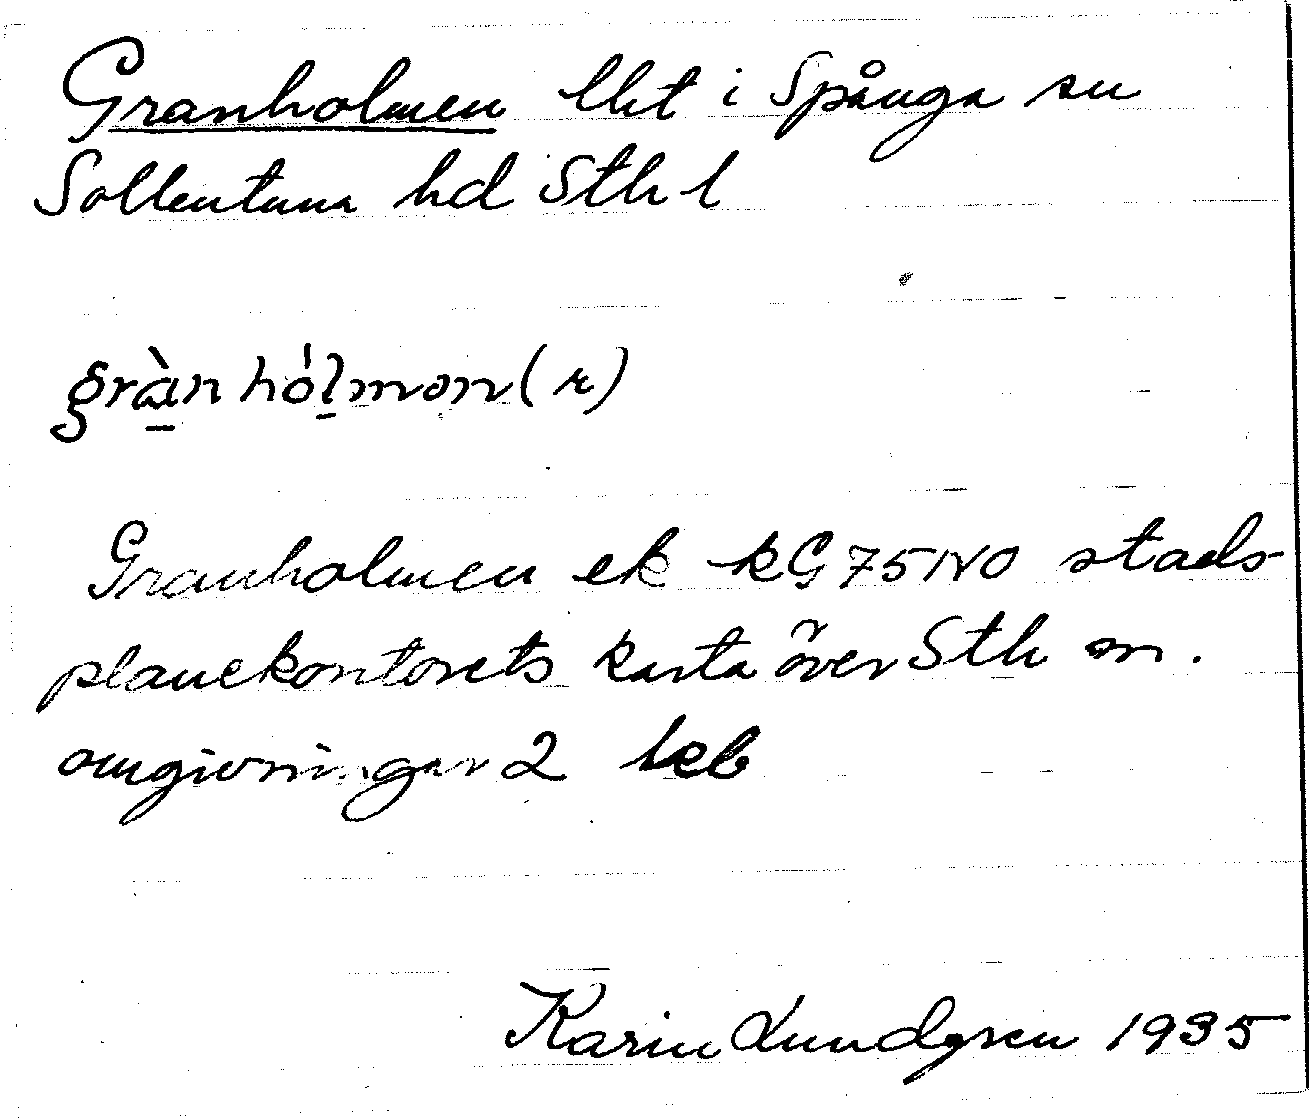 Granholmen llɫt i Spånga sn
Sollentuna hd Sth l
gràn hólmən (r)
Granholmen ek kG 75 NO stads-
planekontorets karta över Sth m.
omgivningar 2 leb
Karin Lundgren 1935